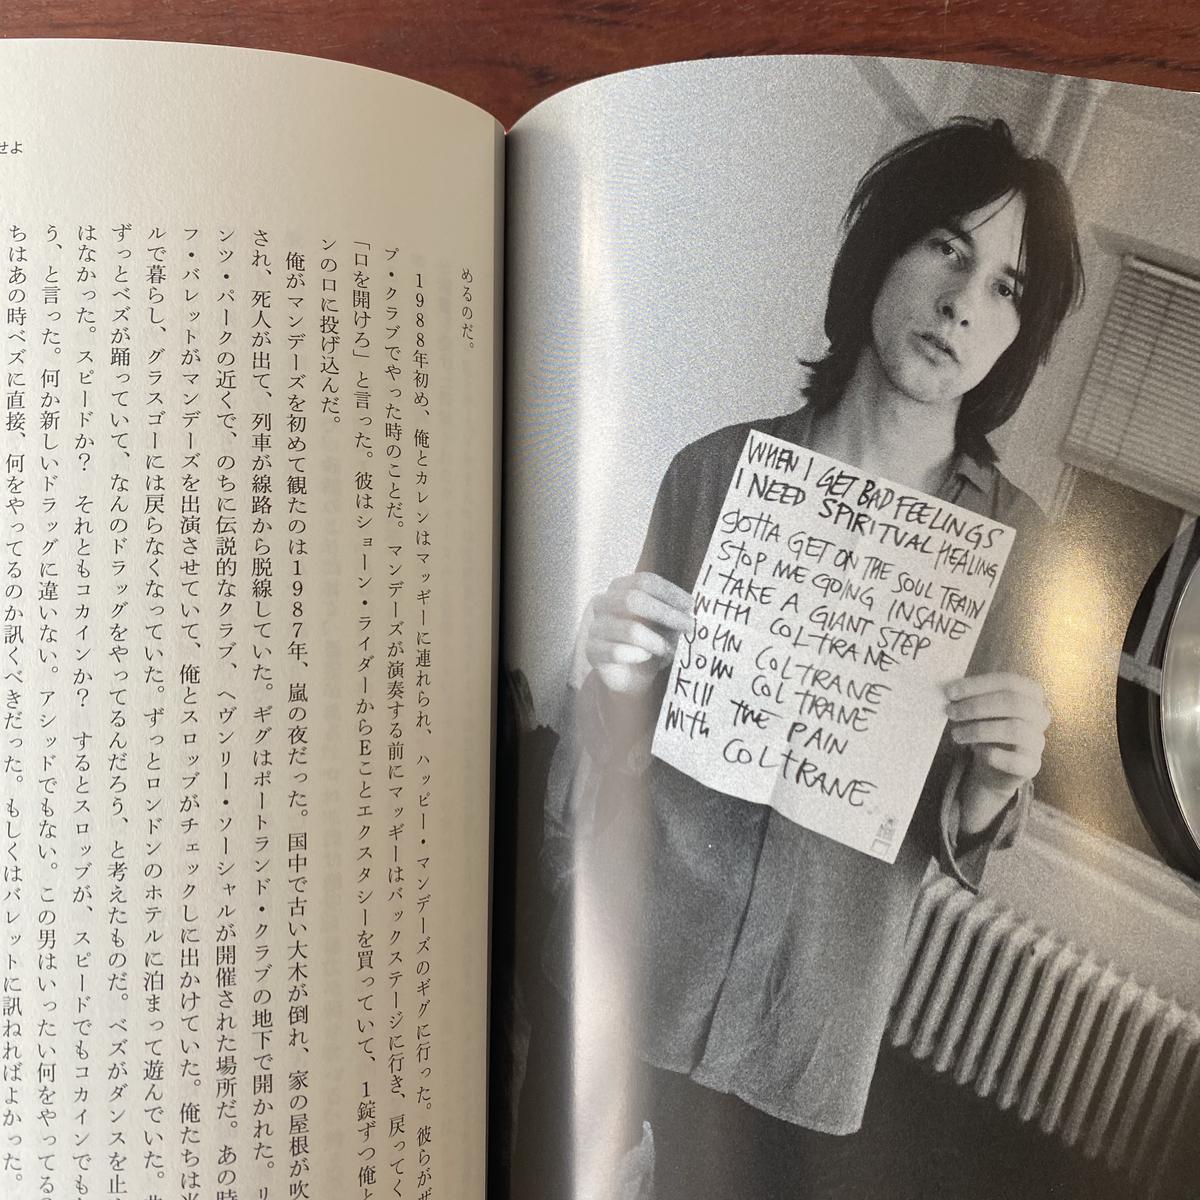 せよ
めるのだ。
1988年初め、俺とカレンはマッギーに連れられ、ハッピー・マンデーズのギグに行った。彼らがザ
プ・クラブでやった時のことだ。マンデーズが演奏する前にマッギーはバックステージに行き、戻ってく
「口を開けろ」と言った。彼はショーン・ライダーからEことエクスタシーを買っていて、1錠ずつ俺と
ンの口に投げ込んだ。
俺がマンデーズを初めて観たのは1987年、嵐の夜だった。国中で古い大木が倒れ、家の屋根が吹
され、死人が出て、列車が線路から脱線していた。ギグはポートランド・クラブの地下で開かれた。リ
ンツ・パークの近くで、のちに伝説的なクラブ、ヘヴンリー・ソーシャルが開催された場所だ。あの時
フ・バレットがマンデーズを出演させていて、俺とスロッブがチェックしに出かけていた。俺たちは
ルで暮らし、グラスゴーには戻らなくなっていた。ずっとロンドンのホテルに泊まって遊んでいた。
ずっとベズが踊っていて、なんのドラッグをやってるんだろう、と考えたものだ。ベズがダンスを止
はなかった。スピードか？ それともコカインか？ するとスロッブが、スピードでもコカインでも
う、と言った。何か新しいドラッグに違いない。アシッドでもない。この男はいったい何をやってる
ちはあの時ベズに直接、何をやってるのか訊くべきだった。もしくはバレットに訊ねればよかった。
WHEN I GET BAD FEELINGS
I NEED SPIRITUAL HEALING
gOTTA GET ON THE SOUL TRAIN
STOP ME GOING INSANE
I TAKE A GIANT STEP
WITH COLTRANE
JOHN COLTRANE
JOHN COLTRANE
KILL THE PAIN
WITH COLTRANE.